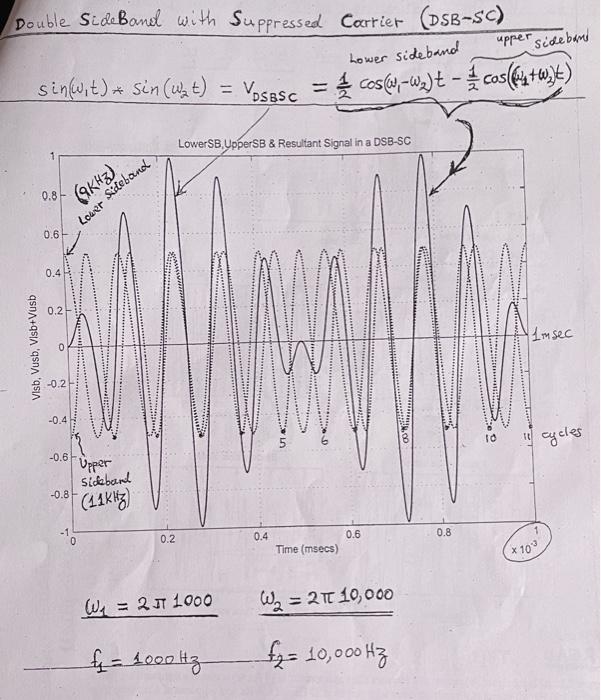 Double SideBand with Suppressed Carrier (DSB-SC)
Lower sideband
upper sideband
sin(ω₁t) * sin(ω₂t) = V_DSBSC = 1/2 cos(ω₁-ω₂)t - 1/2 cos((ω₁+ω₂)t)
LowerSB,UpperSB & Resultant Signal in a DSB-SC
1
(9KHz)
Lower Sideband
0.8
0.6
0.4
0.2
0
-0.2
-0.4
-0.6
-0.8
-1
Vlsb, Vusb, Vlsb+Vusb
1msec
5 6 8 10 11 cycles
Upper
sideband
(11KHz)
0 0.2 0.4 0.6 0.8 1
Time (msecs)
x 10⁻³
ω₁ = 2π 1000 ω₂ = 2π 10,000
f₁ = 1000 Hz f₂ = 10,000 Hz